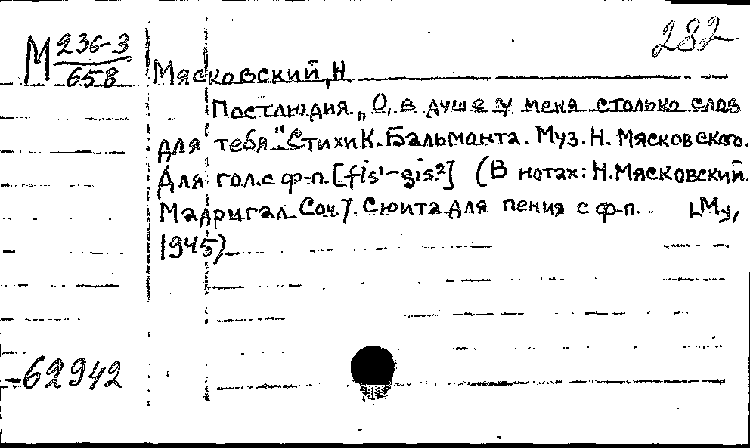 282
М 236-3
658
Мясковский, Н
Постлюдия „О, в душе у меня столько слов
для тебя" Стихи К. Бальмонта. Муз. Н. Мясковского.
Для гол. с ф-п. [fis¹-gis²] (В нотах: Н. Мясковский.
Мадригал. Соч. 7. Сюита для пения с ф-п. М.,
1945)
62942